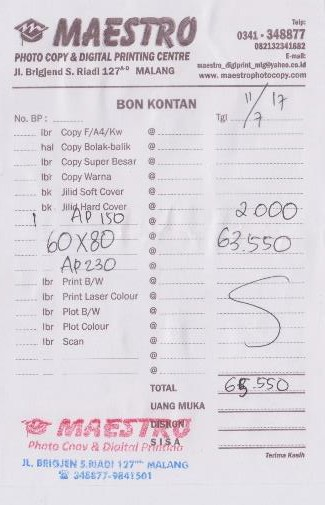 MAESTRO
PHOTO COPY & DIGITAL PRINTING CENTRE
Jl. Brigjend S. Riadi 127 MALANG
Telp:
0341 - 348877
082132341682
E-mail:
maestro_digiprint_mlg@yahoo.co.id
www.maestrophotocopy.com
BON KONTAN
No. BP : Tgl 11/7 17
lbr Copy F/A4/Kw @
hal Copy Bolak-balik @
lbr Copy Super Besar @
lbr Copy Warna @
bk Jilid Soft Cover @
bk Jilid Hard Cover @ 2.000
1 AP 150 @
60X80 @ 63.550
AP 230 @
lbr Print B/W @
lbr Print Laser Colour @
lbr Plot B/W @
lbr Plot Colour @
lbr Scan @
@
@
TOTAL 65.550
UANG MUKA
DISKON
SISA
Terima Kasih
MAESTRO
Photo Copy & Digital Printing
JL. BRIGJEN S.RIADI 127 MALANG
☎ 348877-9841501